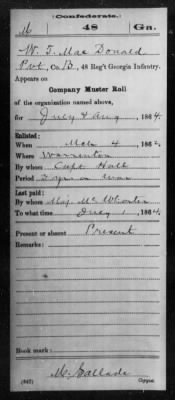 (Confederate.)
M 48 Ga.
W. T. Mac Donald
Pvt, Co. B, 48 Reg't Georgia Infantry.
Appears on
Company Muster Roll
of the organization named above,
for July & Aug, 1864.
Enlisted:
When Mch 4, 1862.
Where Warrenton
By whom Capt Hall
Period 3 yrs or war
Last paid:
By whom Maj. McWhorter
To what time July 1, 1864.
Present or absent Present
Remarks:
Book mark:
(642) Copyist.